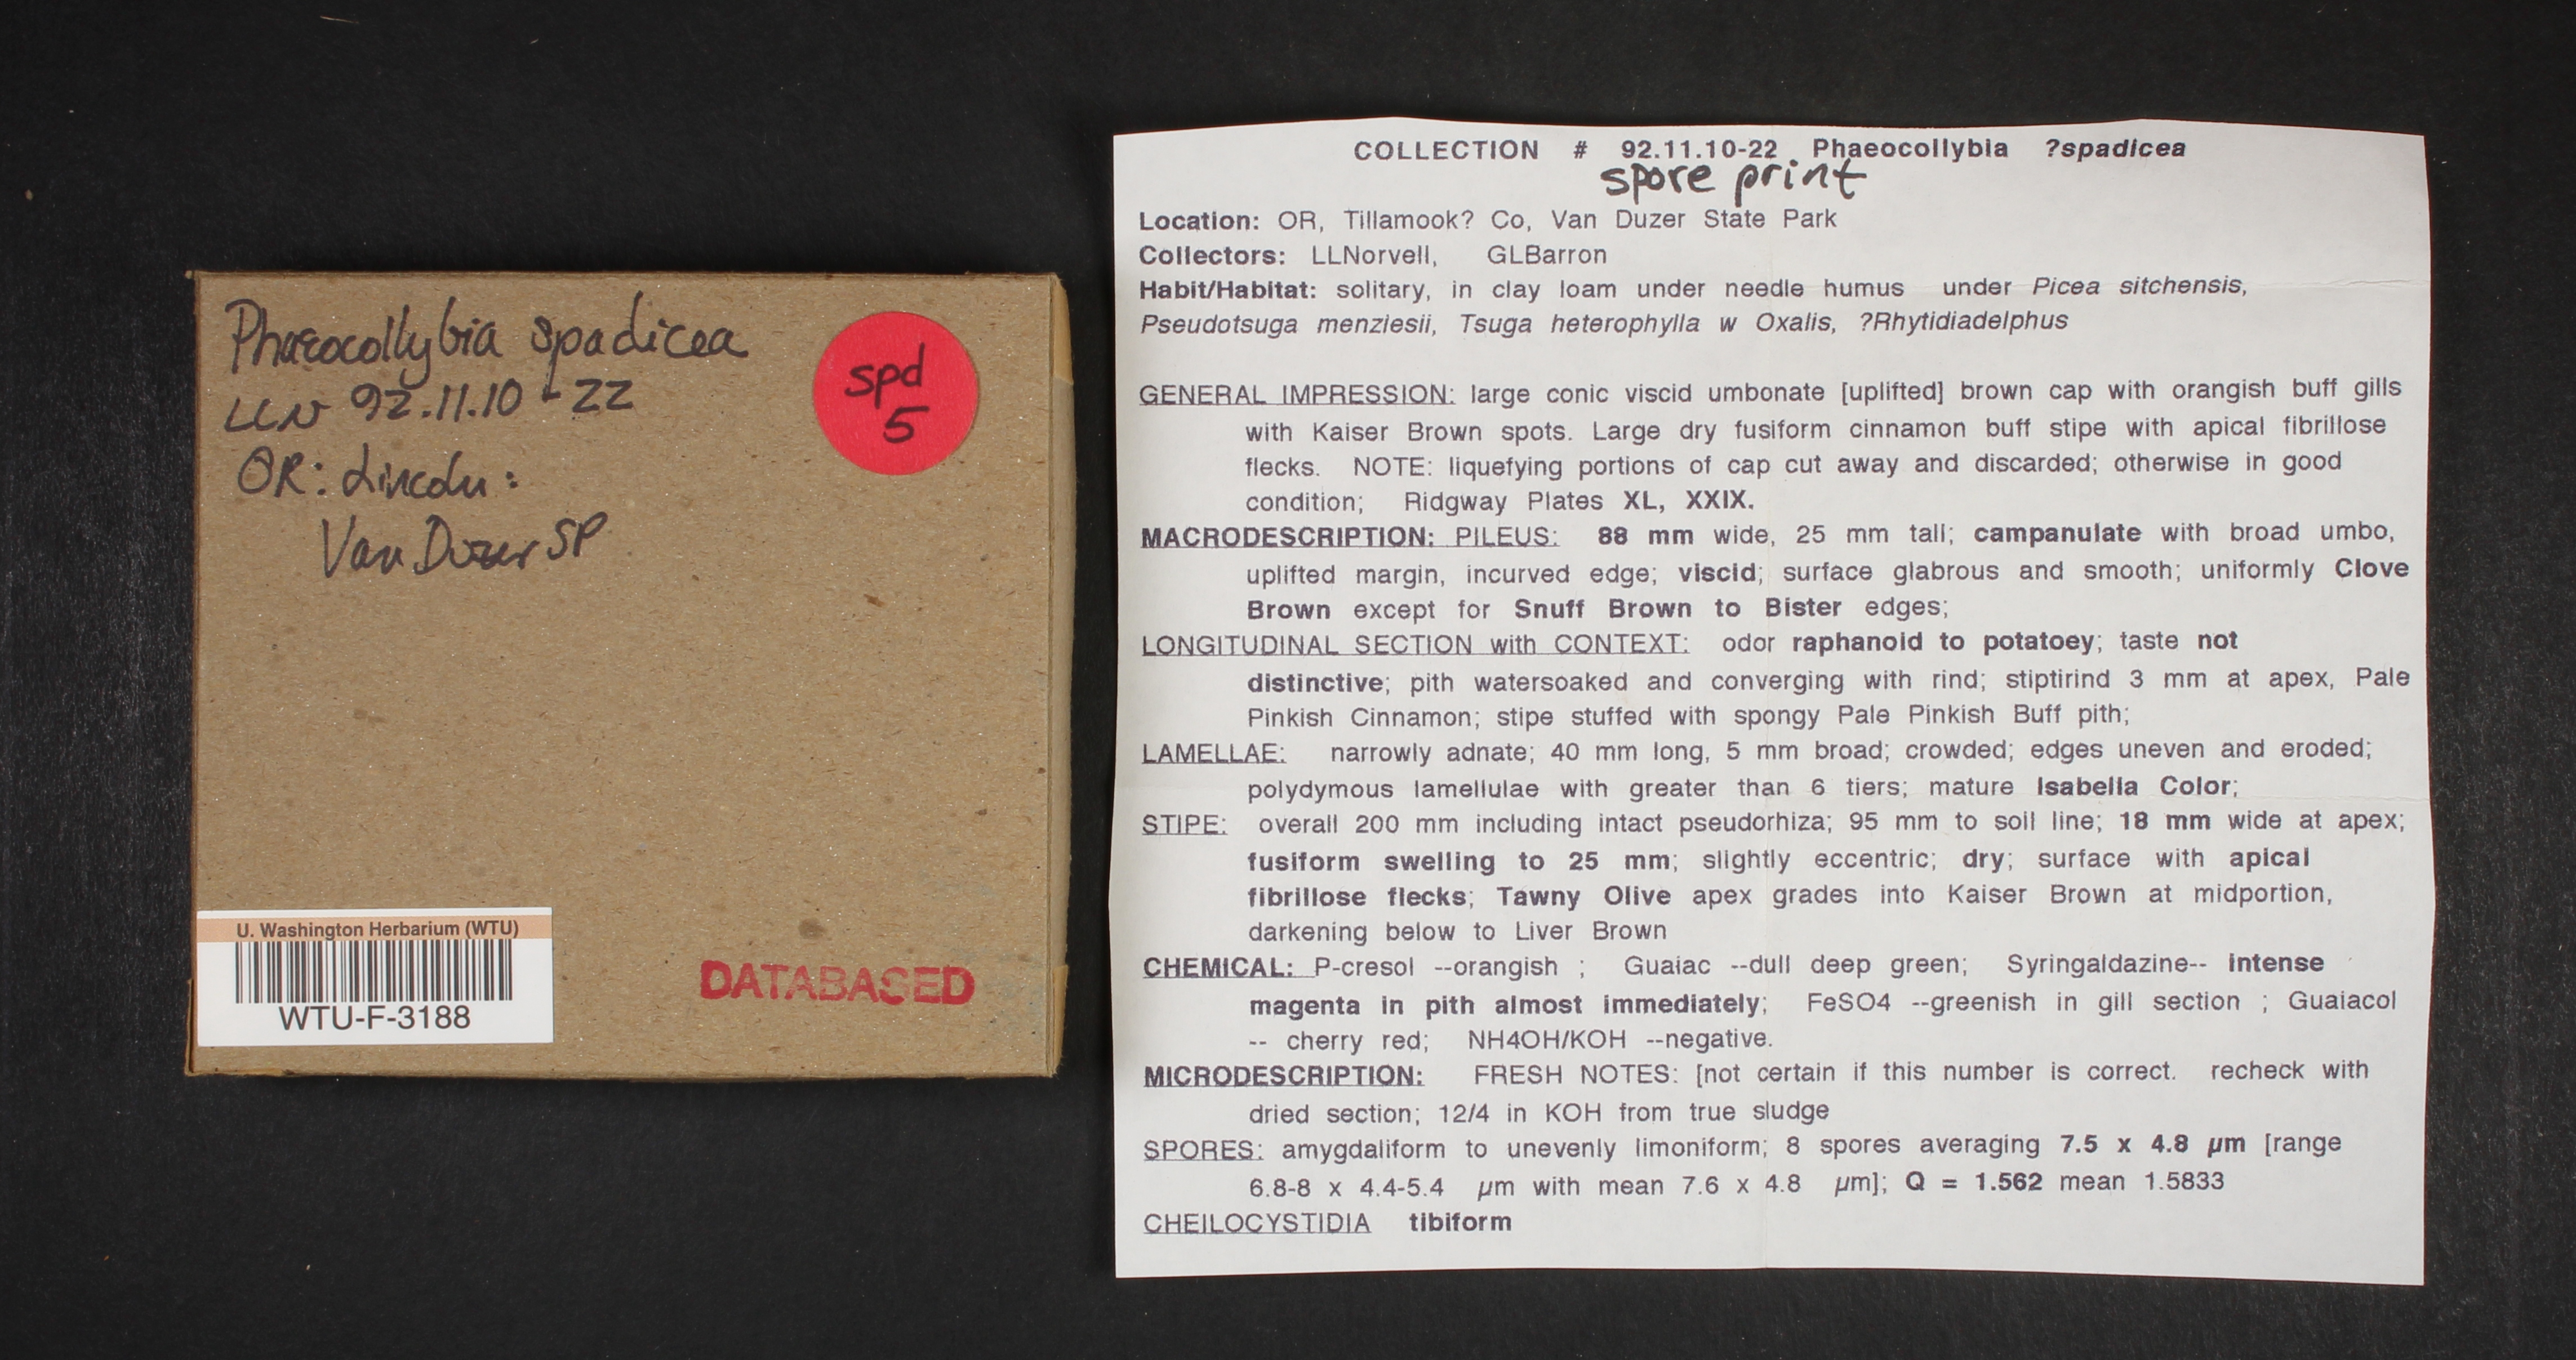 Phaeocollybia spadicea
LLN 92.11.10-22
OR: Lincoln:
Van Duzer SP
spd
5
U. Washington Herbarium (WTU)
WTU-F-3188
DATABASED
COLLECTION # 92.11.10-22 Phaeocollybia ?spadicea
spore print
Location: OR, Tillamook? Co, Van Duzer State Park
Collectors: LLNorvell, GLBarron
Habit/Habitat: solitary, in clay loam under needle humus under Picea sitchensis,
Pseudotsuga menziesii, Tsuga heterophylla w Oxalis, ?Rhytidiadelphus
GENERAL IMPRESSION: large conic viscid umbonate [uplifted] brown cap with orangish buff gills
with Kaiser Brown spots. Large dry fusiform cinnamon buff stipe with apical fibrillose
flecks. NOTE: liquefying portions of cap cut away and discarded; otherwise in good
condition; Ridgway Plates XL, XXIX.
MACRODESCRIPTION: PILEUS: 88 mm wide, 25 mm tall; campanulate with broad umbo,
uplifted margin, incurved edge; viscid; surface glabrous and smooth; uniformly Clove
Brown except for Snuff Brown to Bister edges;
LONGITUDINAL SECTION with CONTEXT: odor raphanoid to potatoey; taste not
distinctive; pith watersoaked and converging with rind; stiptirind 3 mm at apex, Pale
Pinkish Cinnamon; stipe stuffed with spongy Pale Pinkish Buff pith;
LAMELLAE: narrowly adnate; 40 mm long, 5 mm broad; crowded; edges uneven and eroded;
polydymous lamellulae with greater than 6 tiers; mature Isabella Color;
STIPE: overall 200 mm including intact pseudorhiza; 95 mm to soil line; 18 mm wide at apex;
fusiform swelling to 25 mm; slightly eccentric; dry; surface with apical
fibrillose flecks; Tawny Olive apex grades into Kaiser Brown at midportion,
darkening below to Liver Brown
CHEMICAL: P-cresol --orangish ; Guaiac --dull deep green; Syringaldazine-- intense
magenta in pith almost immediately; FeSO4 --greenish in gill section ; Guaiacol
-- cherry red; NH4OH/KOH --negative.
MICRODESCRIPTION: FRESH NOTES: [not certain if this number is correct. recheck with
dried section; 12/4 in KOH from true sludge
SPORES: amygdaliform to unevenly limoniform; 8 spores averaging 7.5 x 4.8 µm [range
6.8-8 x 4.4-5.4 µm with mean 7.6 x 4.8 µm]; Q = 1.562 mean 1.5833
CHEILOCYSTIDIA tibiform